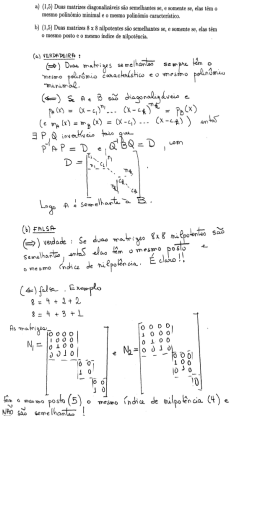 a) (1,5) Duas matrizes diagonalizáveis são semelhantes se, e somente se, elas têm o
mesmo polinômio minimal e o mesmo polinômio característico.
b) (1,5) Duas matrizes 8 x 8 nilpotentes são semelhantes se, e somente se, elas têm
o mesmo posto e o mesmo índice de nilpotência.
(a) VERDADEIRA:
(⟹) Duas matrizes semelhantes sempre têm o
mesmo polinômio característico e o mesmo polinômio
minimal.
(⟸) Se A e B são diagonalizáveis e
p_A(x) = (x-c_1)^{n_1} ... (x-c_k)^{n_k} = p_B(x)
(e m_A(x) = m_B(x) = (x-c_1) ... (x-c_k)) então
∃ P, Q invertíveis tais que
P^{-1}AP = D e Q^{-1}BQ = D, com
D =
Logo A é semelhante à B.
(b) FALSA
(⟹) verdade: Se duas matrizes 8x8 nilpotentes são
semelhantes, então elas têm o mesmo posto e
o mesmo índice de nilpotência. É claro!!
(⟸) falsa. Exemplo
8 = 4 + 2 + 2
8 = 4 + 3 + 1
As matrizes
N_1 = e N_2 =
0 0 0 0 0 0 0 0
1 0 0 0 1 0 0 0
0 1 0 0 0 1 0 0
0 0 1 0 0 0 1 0
0 0 0 0 0
1 0 1 0 0
0 0 0 1 0
1 0 0
o mesmo posto (5) o mesmo índice de nilpotência (4) e
NÃO são semelhantes!